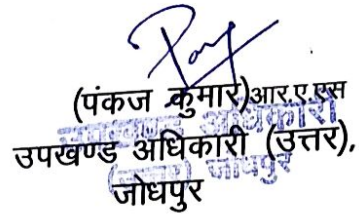 (पंकज कुमार)आर.ए.एस
उपखण्ड अधिकारी (उत्तर),
जोधपुर
उपखण्ड अधिकारी
(उत्तर) जोधपुर